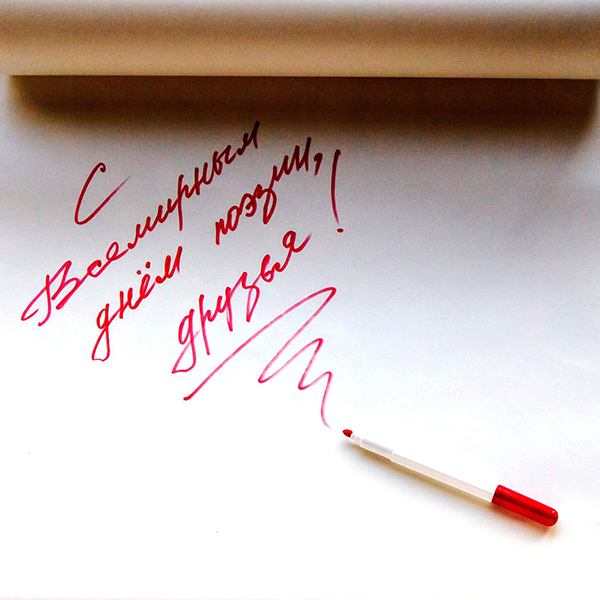 С
Всемирным
днём поэзии,
друзья!